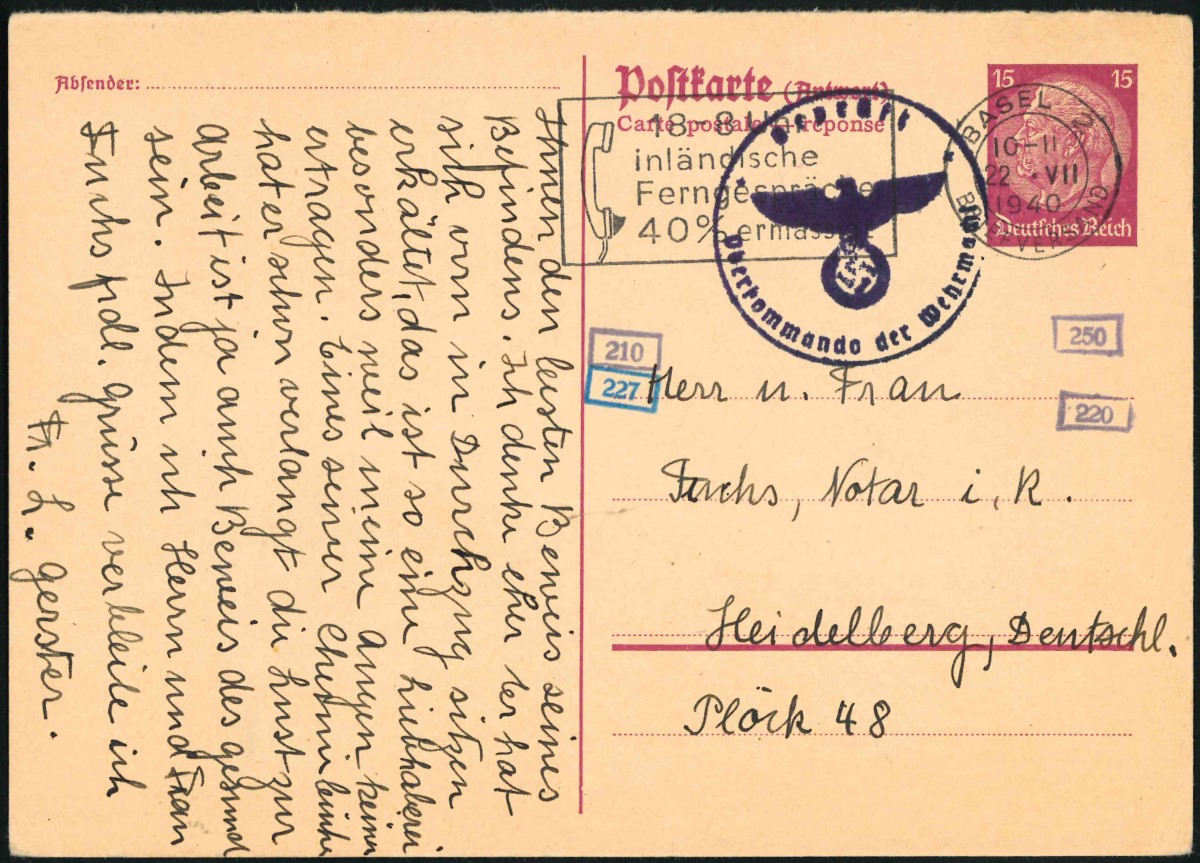 Absender:
Postkarte (Antwort)
Carte postale réponse
18-8 Uhr
inländische
Ferngespräche
40% ermässigt
Geprüft
Oberkommando der Wehrmacht
15 15
Deutsches Reich
BASEL 2
10-11
22. VII
1940
BRIEFVERSAND
210
227
250
220
Herr u. Frau
Fuchs, Notar i. R.
Heidelberg, Deutschl.
Plöck 48
Ihnen den besten Beweis seines
Befindens. Ich denke eher er hat
sich vorn in Durchzug sitzen
erkältet, das ist so eine Liebhaberei
besonders weil meine Augen keinen
ertragen. Eines seiner
hat er schon verlangt die Lust zur
Arbeit ist ja auch Beweis des gesund
sein. Indem ich Herrn und Frau
Fuchs frdl. grüsse verbleibe ich
Fr. L. Gerster.